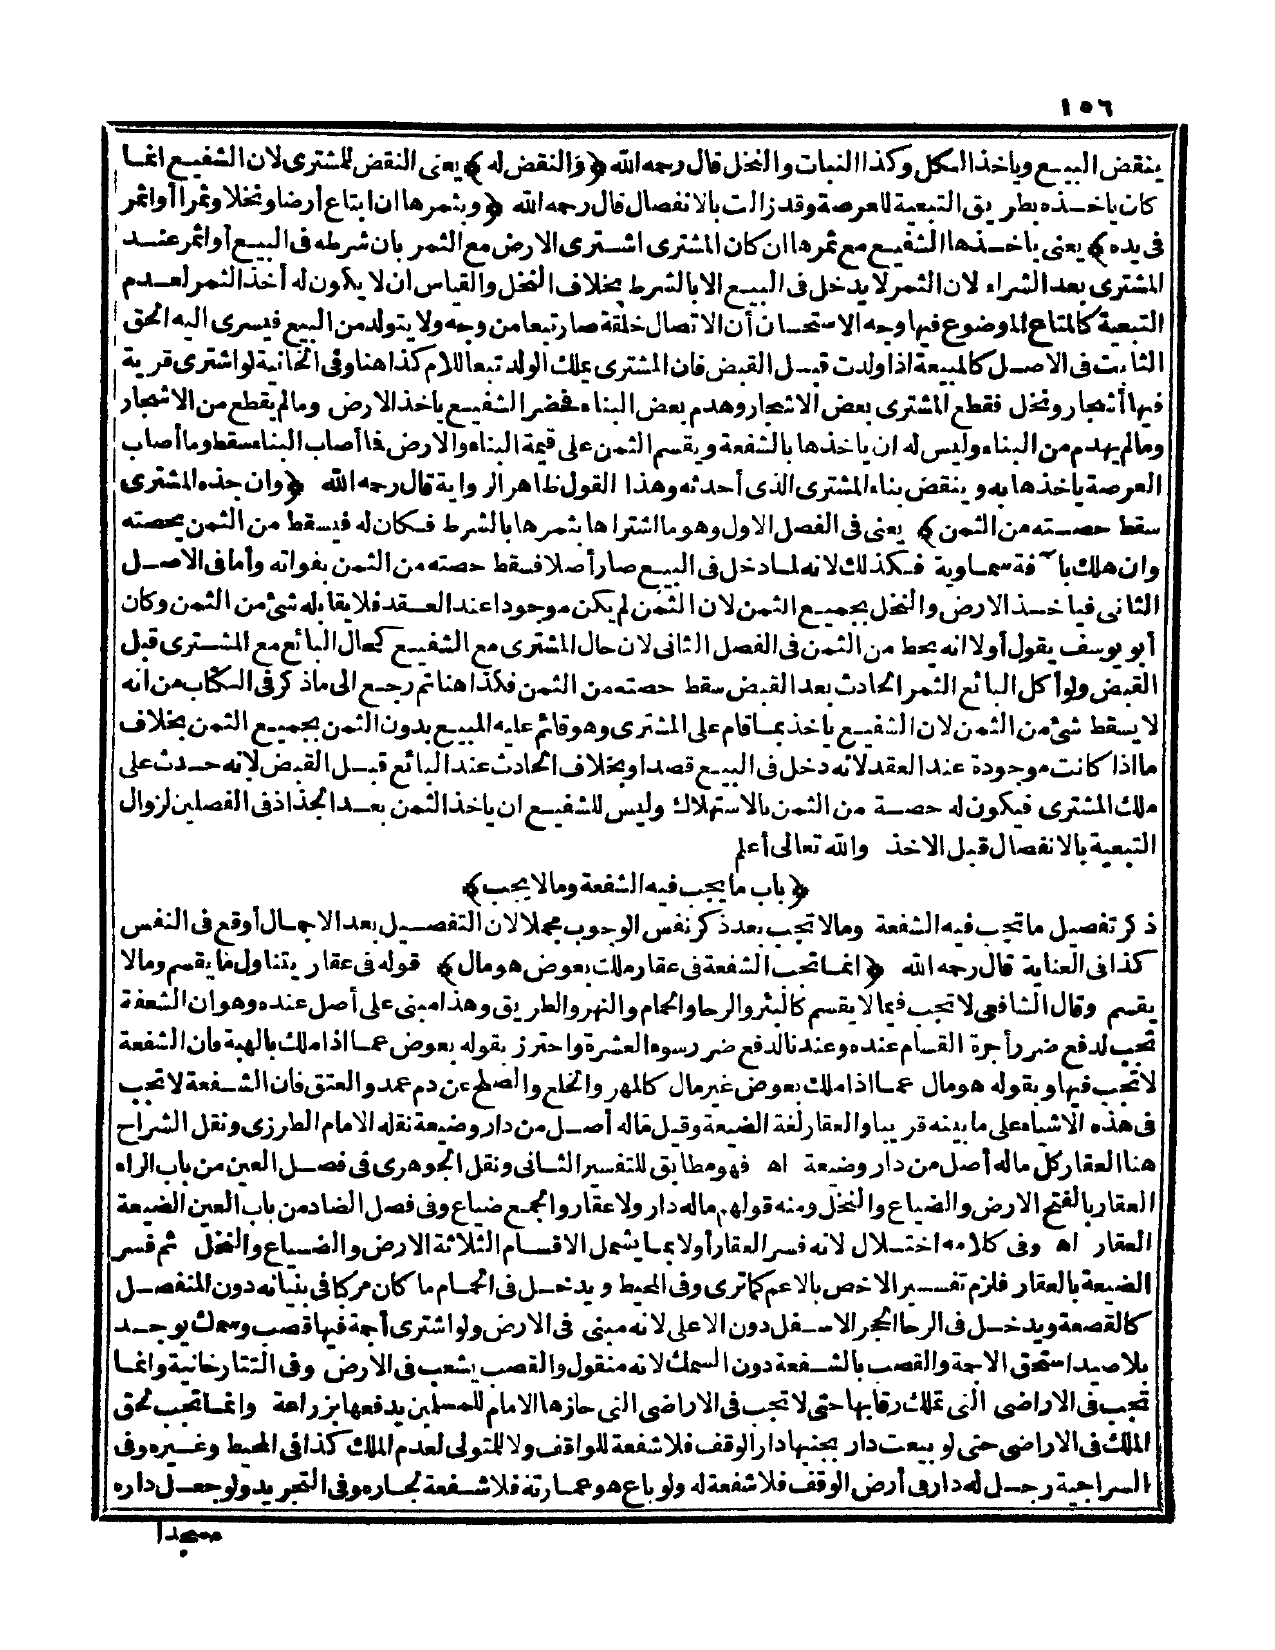 ١٥٦
ينقض البيع وياخذ الكل وكذا النبات والنخل قال رحمه الله ﴿والنقض له﴾ يعنى النقض للمشترى لان الشفيع انما
كان ياخذه بطريق التبعية للعرصة وقد زالت بالانفصال قال رحمه الله ﴿وبثمرها ان ابتاع أرضا ونخلا وثمرا أو اثمر
فى يده﴾ يعنى ياخذها الشفيع مع ثمرها ان كان المشترى اشترى الارض مع الثمر بان شرطه فى البيع أو اثمر عند
المشترى بعد الشراء لان الثمر لا يدخل فى البيع الا بالشرط بخلاف النخل والقياس ان لا يكون له أخذ الثمر لعدم
التبعية كالمتاع الموضوع فيها وجه الاستحسان أن الاتصال خلقة صار تبعا من وجه ولا يتولد من البيع فيسرى اليه الحق
الثابت فى الاصل كالمبيعة اذا ولدت قبل القبض فان المشترى يملك الولد تبعا للام كذا هنا وفى الخانية لو اشترى قرية
فيها أشجار ونخل فقطع المشترى بعض الاشجار وهدم بعض البناء فحضر الشفيع ياخذ الارض ومالم يقطع من الاشجار
ومالم يهدم من البناء وليس له ان ياخذها بالشفعة ويقسم الثمن على قيمة البناء والارض فما أصاب البناء سقط وما أصاب
العرصة ياخذها به وينقض بناء المشترى الذى أحدثه وهذا القول ظاهر الرواية قال رحمه الله ﴿وان جذه المشترى
سقط حصته من الثمن﴾ يعنى فى الفصل الاول وهو ما اشتراها بثمرها بالشرط فكان له فيسقط من الثمن بحصته
وان هلك باآفة سماوية فكذلك لانه لما دخل فى البيع صار أصلا فسقط حصته من الثمن بفواته وأما فى الاصل
الثانى فياخذ الارض والنخل بجميع الثمن لان الثمن لم يكن موجودا عند العقد فلا يقابله شئ من الثمن وكان
أبو يوسف يقول أولا انه يحط من الثمن فى الفصل الثانى لان حال المشترى مع الشفيع كحال البائع مع المشترى قبل
القبض ولو أكل البائع الثمر الحادث بعد القبض سقط حصته من الثمن فكذا هنا ثم رجع الى ماذكر فى الكتاب من انه
لا يسقط شئ من الثمن لان الشفيع ياخذ بما قام على المشترى وهو قائم عليه المبيع بدون الثمن بجميع الثمن بخلاف
ما اذا كانت موجودة عند العقد لانه دخل فى البيع قصدا وبخلاف الحادث عند البائع قبل القبض لانه حدث على
ملك المشترى فيكون له حصة من الثمن بالاستهلاك وليس للشفيع ان ياخذ الثمن بعد الجذاذ فى الفصلين لزوال
التبعية بالانفصال قبل الاخذ والله تعالى أعلم
﴿باب ما يجب فيه الشفعة ومالا يجب﴾
ذكر تفصيل ما تجب فيه الشفعة ومالا تجب بعد ذكر نفس الوجوب مجملا لان التفصيل بعد الاجمال أوقع فى النفس
كذا فى العناية قال رحمه الله ﴿انما تجب الشفعة فى عقار ملك بعوض هو مال﴾ قوله فى عقار يتناول ما يقسم ومالا
يقسم وقال الشافعى لا تجب فيما لا يقسم كالبئر والرحا والحمام والنهر والطريق وهذا مبنى على أصل عنده وهو ان الشعفة
تجب لدفع ضر رأجرة القسام عنده وعندنا لدفع ضر رسوء العشرة واحترز بقوله بعوض عما اذا ملك بالهبة فان الشفعة
لا تجب فيها وبقوله هو مال عما اذا ملك بعوض غير مال كالمهر والخلع والصلح عن دم عمد والعتق فان الشفعة لا تجب
فى هذه الاشياء على ما بينه قريبا والعقار لغة الضيعة وقيل ماله أصل من دار وضيعة نقله الامام الطرزى ونقل الشراح
هنا العقار كل ماله أصل من دار وضيعة اه فهو مطابق للتفسير الثانى ونقل الجوهرى فى فصل العين من باب الراء
العقار بالفتح الارض والضياع والنخل ومنه قولهم ماله دار ولا عقار والجمع ضياع وفى فصل الضاد من باب العين الضيعة
العقار اه وفى كلامه اختلال لانه فسر العقار أولا بما يشمل الاقسام الثلاثة الارض والضياع والنخل ثم فسر
الضيعة بالعقار فلزم تفسير الاخص بالاعم كما ترى وفى المحيط ويدخل فى الحمام ما كان مركبا فى بنيانه دون المنفصل
كالقصعة ويدخل فى الرحا الحجر الاسفل دون الاعلى لانه مبنى فى الارض ولو اشترى أجمة فيها قصب وسمك يوجد
بلا صيد استحق الاجمة والقصب بالشفعة دون السمك لانه منقول والقصب يشعب فى الارض وفى التتارخانية وانما
تجب فى الاراضى التى تملك رقابها حتى لا تجب فى الاراضى التى حازها الامام للمسلمين يدفعها بزراعة وانما تجب لحق
الملك فى الاراضى حتى لو بيعت دار بجنبها دار الوقف فلا شفعة للواقف ولا للمتولى لعدم الملك كذا فى المحيط وغيره وفى
السراجية رجل له دار فى أرض الوقف فلا شفعة له ولو باع هو عمارته فلا شفعة لجاره وفى التجريد ولو جعل داره
مسجدا